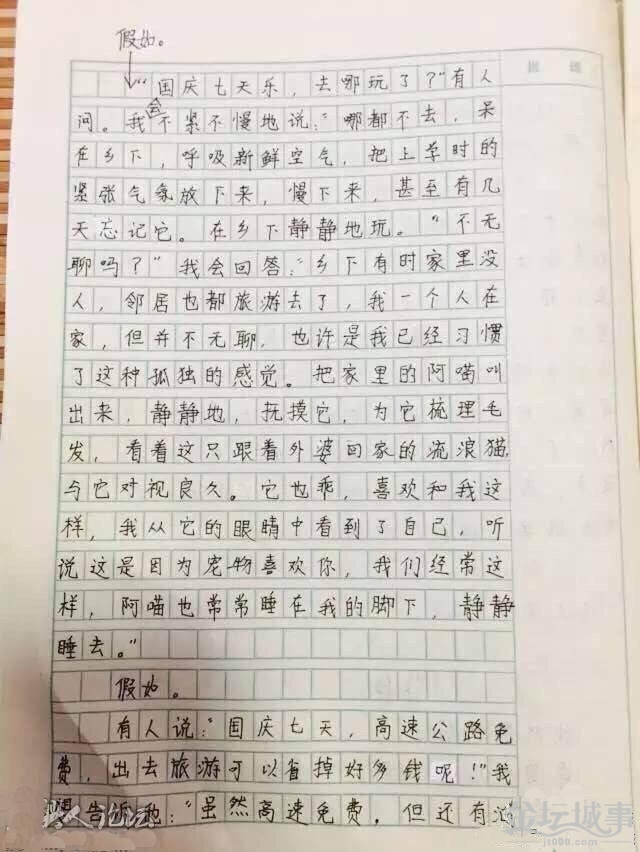 假如。
"国庆七天乐，去哪玩了？"有人
会
问。我不紧不慢地说："哪都不去，呆
在乡下，呼吸新鲜空气，把上学时的
紧张气氛放下来，慢下来，甚至有几
天忘记它。在乡下静静地玩。"不无
聊吗？"我会回答："乡下有时家里没
人，邻居也都旅游去了，我一个人在
家，但并不无聊，也许是我已经习惯
了这种孤独的感觉。把家里的阿喵叫
出来，静静地，抚摸它，为它梳理毛
发，看着这只跟着外婆回家的流浪猫，
与它对视良久。它也乖，喜欢和我这
样，我从它的眼睛中看到了自己，听
说这是因为宠物喜欢你，我们经常这
样，阿喵也常常睡在我的脚下，静静
睡去。"
假如。
有人说："国庆七天，高速公路免
费，出去旅游可以省掉好多钱呢！"我
告诉他："虽然高速免费，但还有油
论坛城事
j1000.com